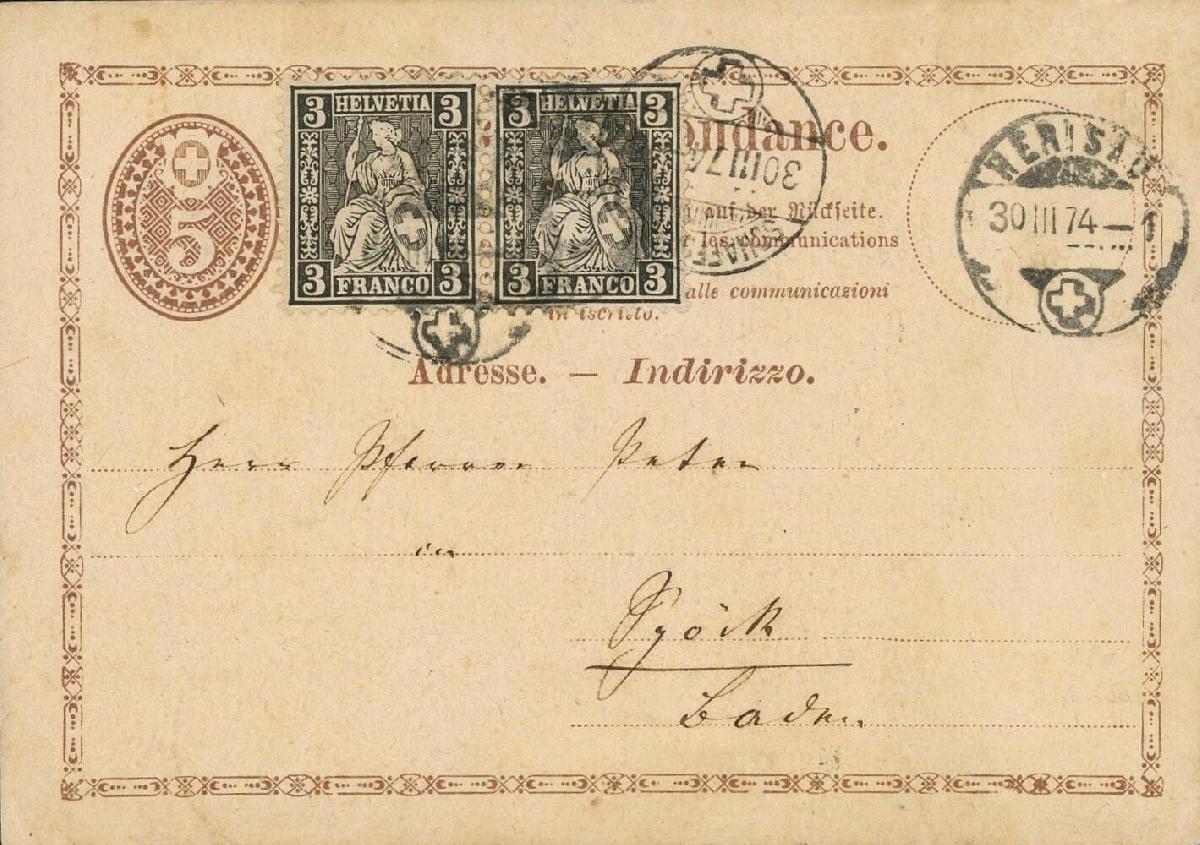 3 HELVETIA 3
3 FRANCO 3
3 HELVETIA 3
3 FRANCO 3
5
ondance.
auf der Rückseite.
les communications
alle communicazioni
in iscritto.
Adresse. — Indirizzo.
HERISAU
30 III 74 — 1
30 III 74
Herr Pfarrer Peter
in
Spöck
Baden